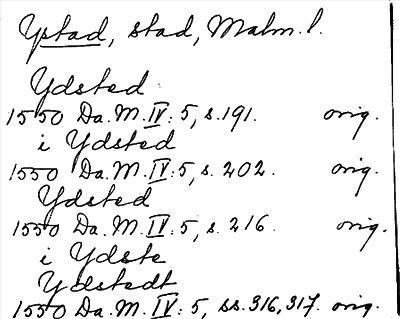 Ystad, stad, Malm. l.
Ydsted
1550 Da. M. IV: 5, s. 191. orig.
i Ydsted
1550 Da. M. IV: 5, s. 202. orig.
Ydsted
1550 Da. M. IV: 5, s. 216. orig.
i Ydste
Ydstedt
1550 Da. M. IV: 5, ss. 316, 317. orig.